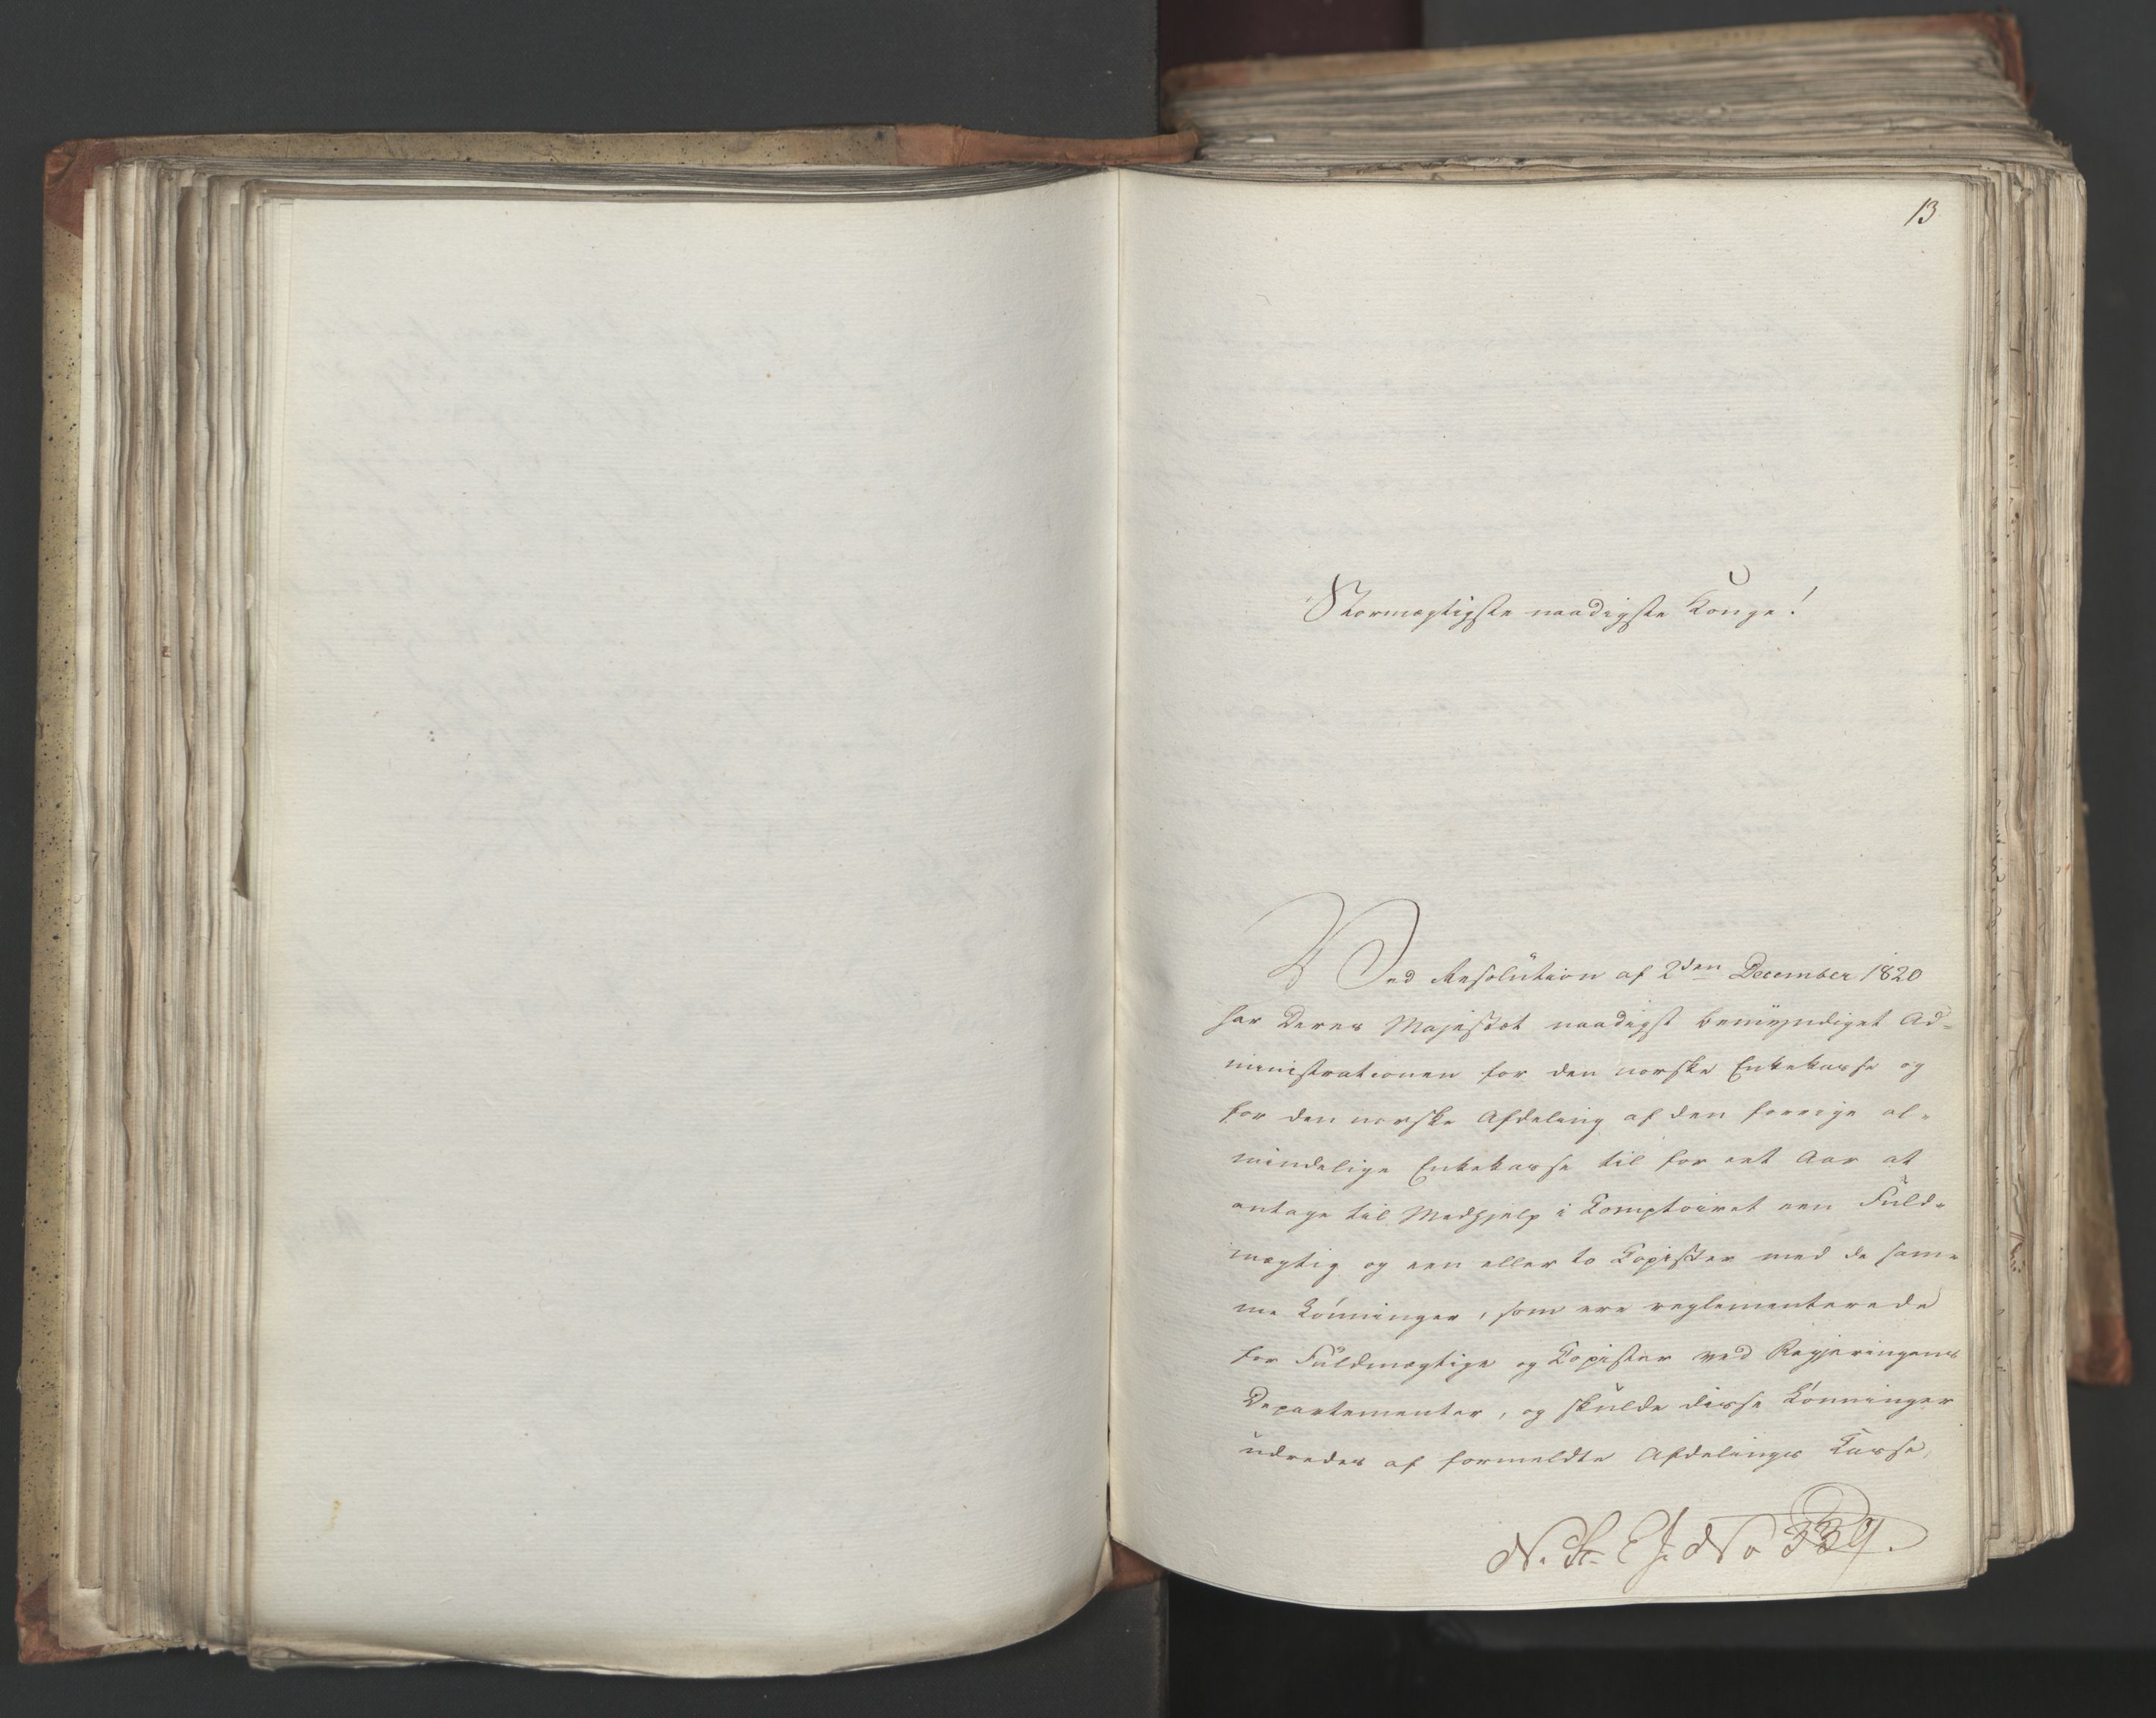 13
Stormægtigste naadigste Konge!
Ved Resolution af 2den December 1820
har Deres Majestæt naadigst bemyndiget Ad=
ministrationen for den norske Enkekasse og
for den norske Afdeling af den forrige al=
mindelige Enkekasse til for eet Aar at
antage til Medhjelp i Comptoiret een Fuld=
mægtig og een eller to Copister med de sam=
me Lønninger, som ere reglementerede
for Fuldmægtige og Copister ved Regjeringens
Departementer, og skulde disse Lønninger
udredes af formeldte Afdelings Kasse,
No 339.